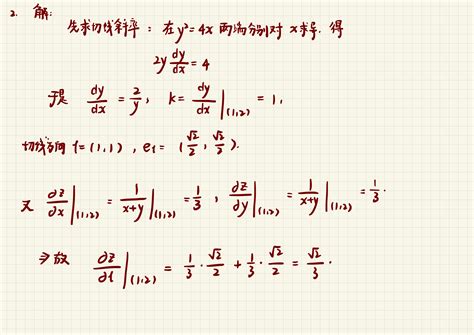 2. 解:
先求切线斜率: 在 y²=4x 两端分别对 x 求导, 得
2y dy/dx = 4
于是 dy/dx = 2/y, k = dy/dx |(1,2) = 1,
切线方向 t=(1,1), e_t = (√2/2, √2/2).
又 ∂z/∂x |(1,2) = 1/(x+y) |(1,2) = 1/3, ∂z/∂y |(1,2) = 1/(x+y) |(1,2) = 1/3.
故 ∂z/∂t |(1,2) = 1/3 · √2/2 + 1/3 · √2/2 = √2/3.